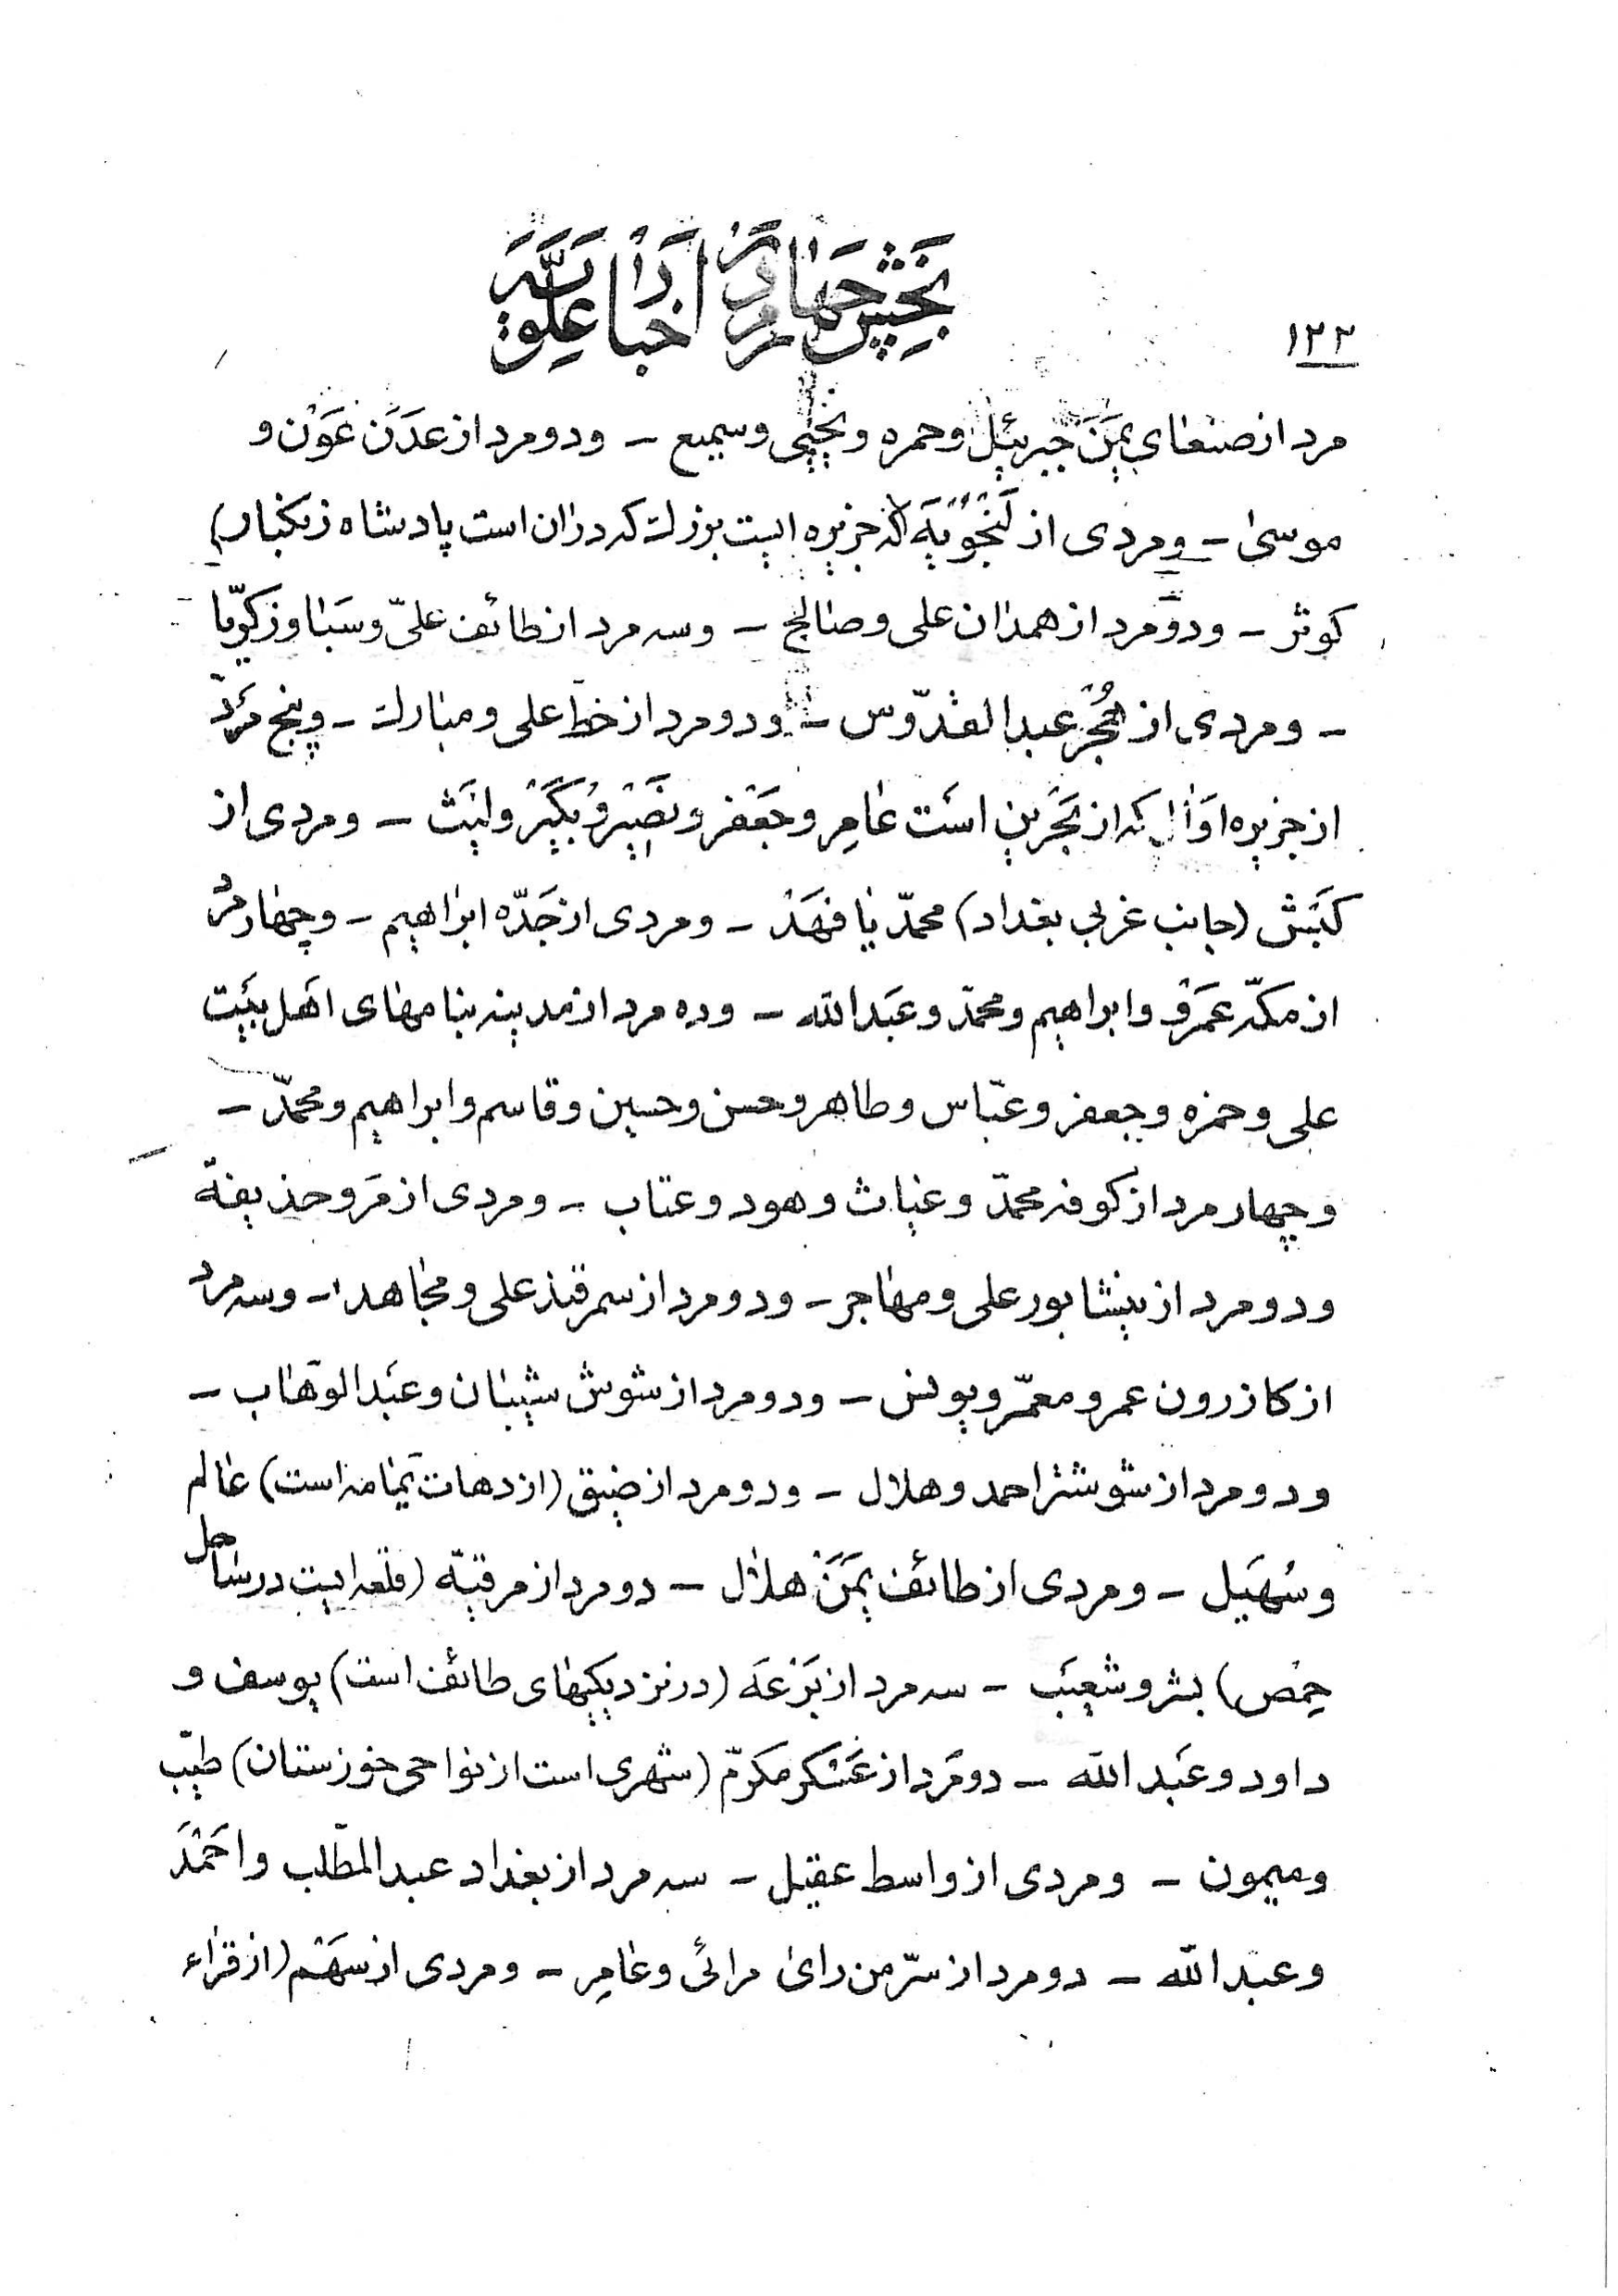 بخش چهارم در اخبار علویه
۱۲۲
مرد از صنعای یمن جبرئیل و حمره و یحیی و سمیع – و دو مرد از عدن عون و
موسی – و مردی از لنجویه (که جزیره ایست بزرك که دران است پادشاه زنگبار)
کوثر – و دو مرد از همدان علی و صالح – و سه مرد از طائف علیّ و سبا و زکریّا
– و مردی از هجر عبدالقدّوس – و دو مرد از خط علی و مبارك – و پنج مرد
از جزیره اوال که از بحرین است عامر و جعفر و نصیر و بکیر و لیث – و مردی از
کبش (جانب غربی بغداد) محمّد یا فهد – و مردی از جدّه ابراهیم – و چهار مرد
از مکّه عمرو و ابراهیم و محمّد و عبدالله – و ده مرد از مدینه بنامهای اهل بیت
علی و حمزه و جعفر و عبّاس و طاهر و حسن و حسین و قاسم و ابراهیم و محمّد –
و چهار مرد از کوفه محمّد و غیاث و هود و عتاب – و مردی از مرو حذیفة
و دو مرد از نیشابور علی و مهاجر – و دو مرد از سمرقند علی و مجاهد – و سه مرد
از کازرون عمر و معمّر و یونس – و دو مرد از شوش شیبان و عبدالوهاب –
و دو مرد از شوشتر احمد و هلال – و دو مرد از ضیق (از دهات یمامه است) عالم
و سهیل – و مردی از طائف یمن هلال – دو مرد از مرقیّه (قلعه ایست در ساحل
حمص) بشر و شعیب – سه مرد از برعه (در نزدیکیهای طائف است) یوسف و
داود و عبدالله – دو مرد از عسکر مکرّم (شهری است از نواحی خوزستان) طیّب
و میمون – و مردی از واسط عقیل – سه مرد از بغداد عبدالمطّلب و احمد
و عبدالله – دو مرد از سرّ من رای مرائی و عامر – و مردی از سهم (از قراء